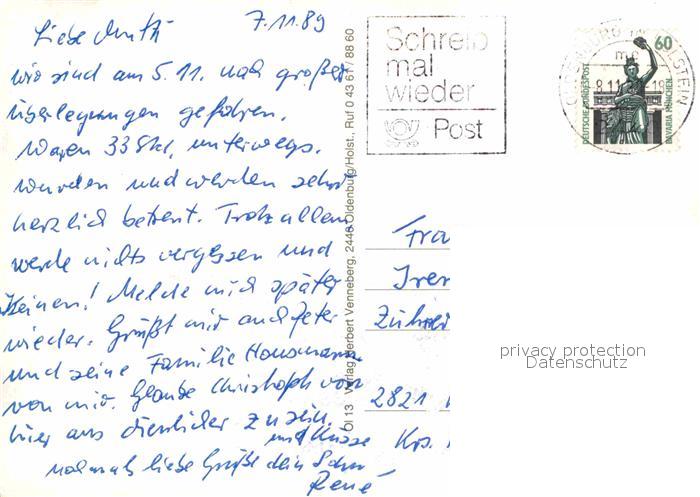 7.11.89
Liebe Mutti
wir sind am 5.11. nach großen
Überlegungen gefahren.
Waren 33 Std. unterwegs.
wurden und werden sehr
herzlich betreut. Trotz allem
werde nichts vergessen und
Keinen! Melde mich später
wieder. Grüßt mir auch Peter
und seine Familie Hausmann
von mir. Glaube Christoph von
hier aus dienlicher zu sein.
nochmals liebe Grüße dein Sohn
und Küsse
René
Ol 13 Verlag Herbert Venneberg, 2448 Oldenburg/Holst., Ruf 0 43 61 / 88 60
Schreib
mal
wieder
Post
OLDENBURG IN HOLSTEIN
8.11.
-18
60
DEUTSCHE BUNDESPOST
BAVARIA MÜNCHEN
2821
Krs.
privacy protection
Datenschutz